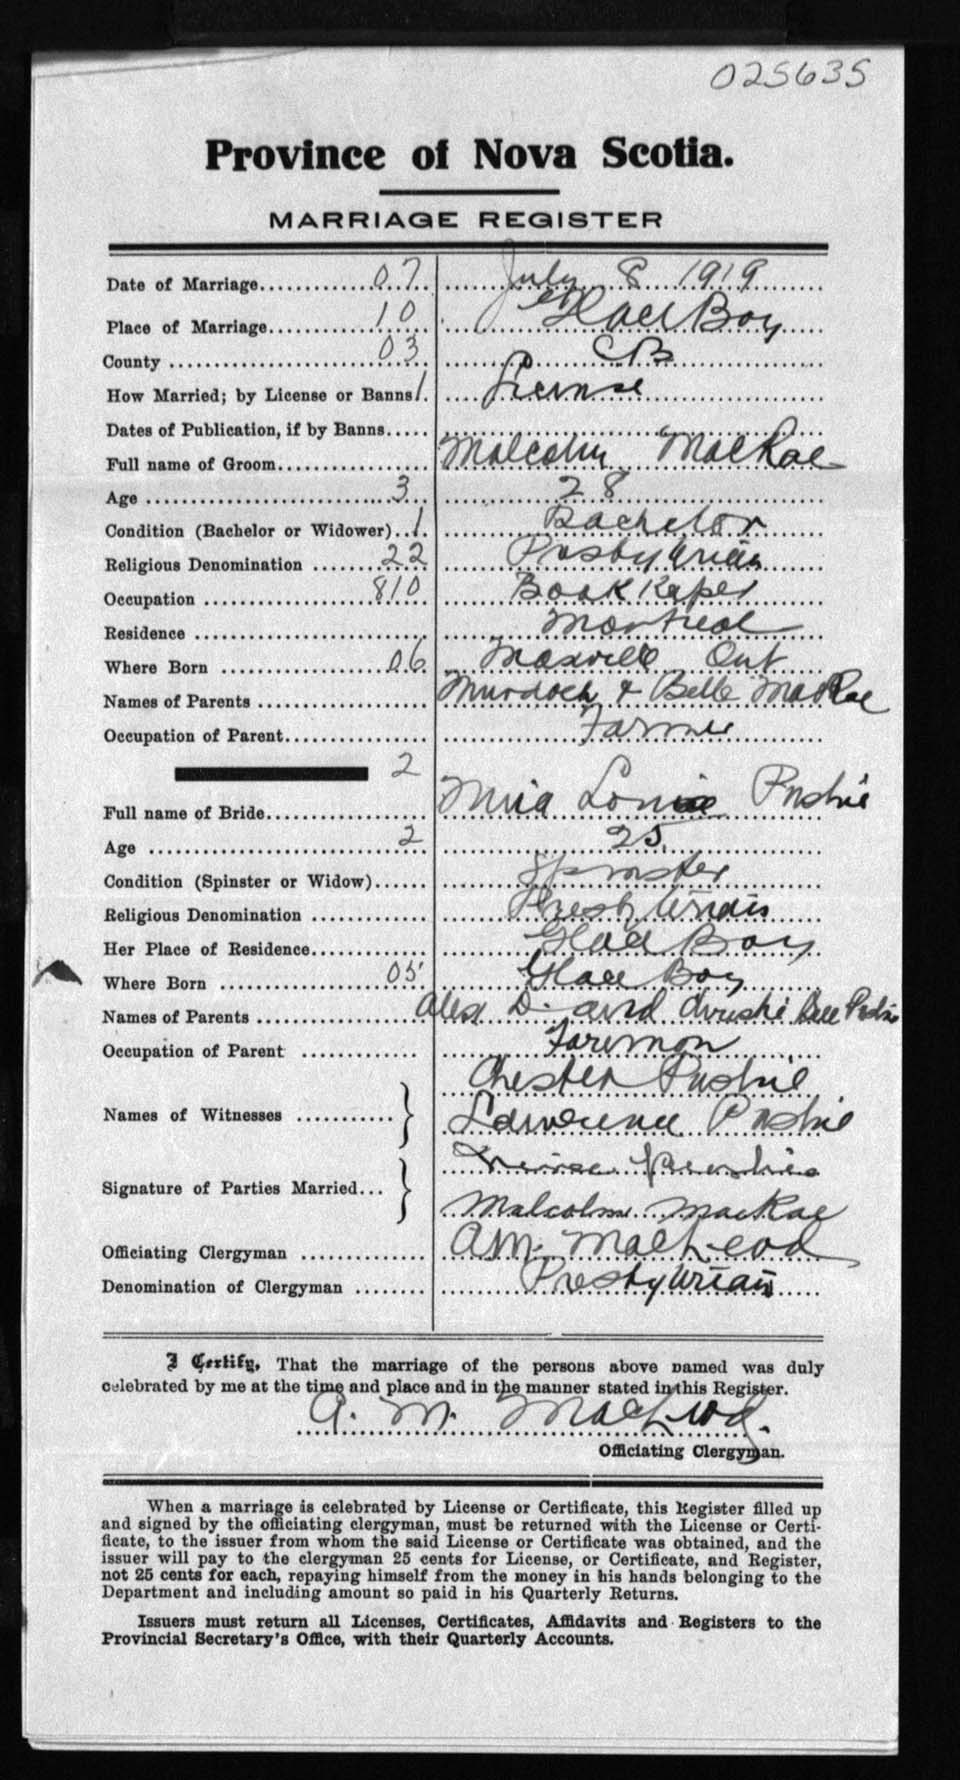 025635
Province of Nova Scotia.
MARRIAGE REGISTER
Date of Marriage 07 July 8 1919
Place of Marriage 10 Glace Bay
County 03 CB
How Married; by License or Banns 1 License
Dates of Publication, if by Banns
Full name of Groom Malcolm MacRae
Age 3 28
Condition (Bachelor or Widower) 1 Bachelor
Religious Denomination 22 Presbyterian
Occupation 810 Book Keeper
Residence Montreal
Where Born 06 Maxville Ont
Names of Parents Murdoch & Belle MacRae
Occupation of Parent Farmer
2
Full name of Bride Louise
Age 2 25
Condition (Spinster or Widow) Spinster
Religious Denomination Presbyterian
Her Place of Residence Glace Bay
Where Born 05 Glace Bay
Names of Parents Alex D. and Bell
Occupation of Parent Foreman
Names of Witnesses Chester
Lawrence
Signature of Parties Married
Malcolm MacRae
Officiating Clergyman A M. MacLeod
Denomination of Clergyman Presbyterian
I Certify, That the marriage of the persons above named was duly
celebrated by me at the time and place and in the manner stated in this Register.
A. M. MacLeod.
Officiating Clergyman.
When a marriage is celebrated by License or Certificate, this Register filled up
and signed by the officiating clergyman, must be returned with the License or Certi-
ficate, to the issuer from whom the said License or Certificate was obtained, and the
issuer will pay to the clergyman 25 cents for License, or Certificate, and Register,
not 25 cents for each, repaying himself from the money in his hands belonging to the
Department and including amount so paid in his Quarterly Returns.
Issuers must return all Licenses, Certificates, Affidavits and Registers to the
Provincial Secretary's Office, with their Quarterly Accounts.